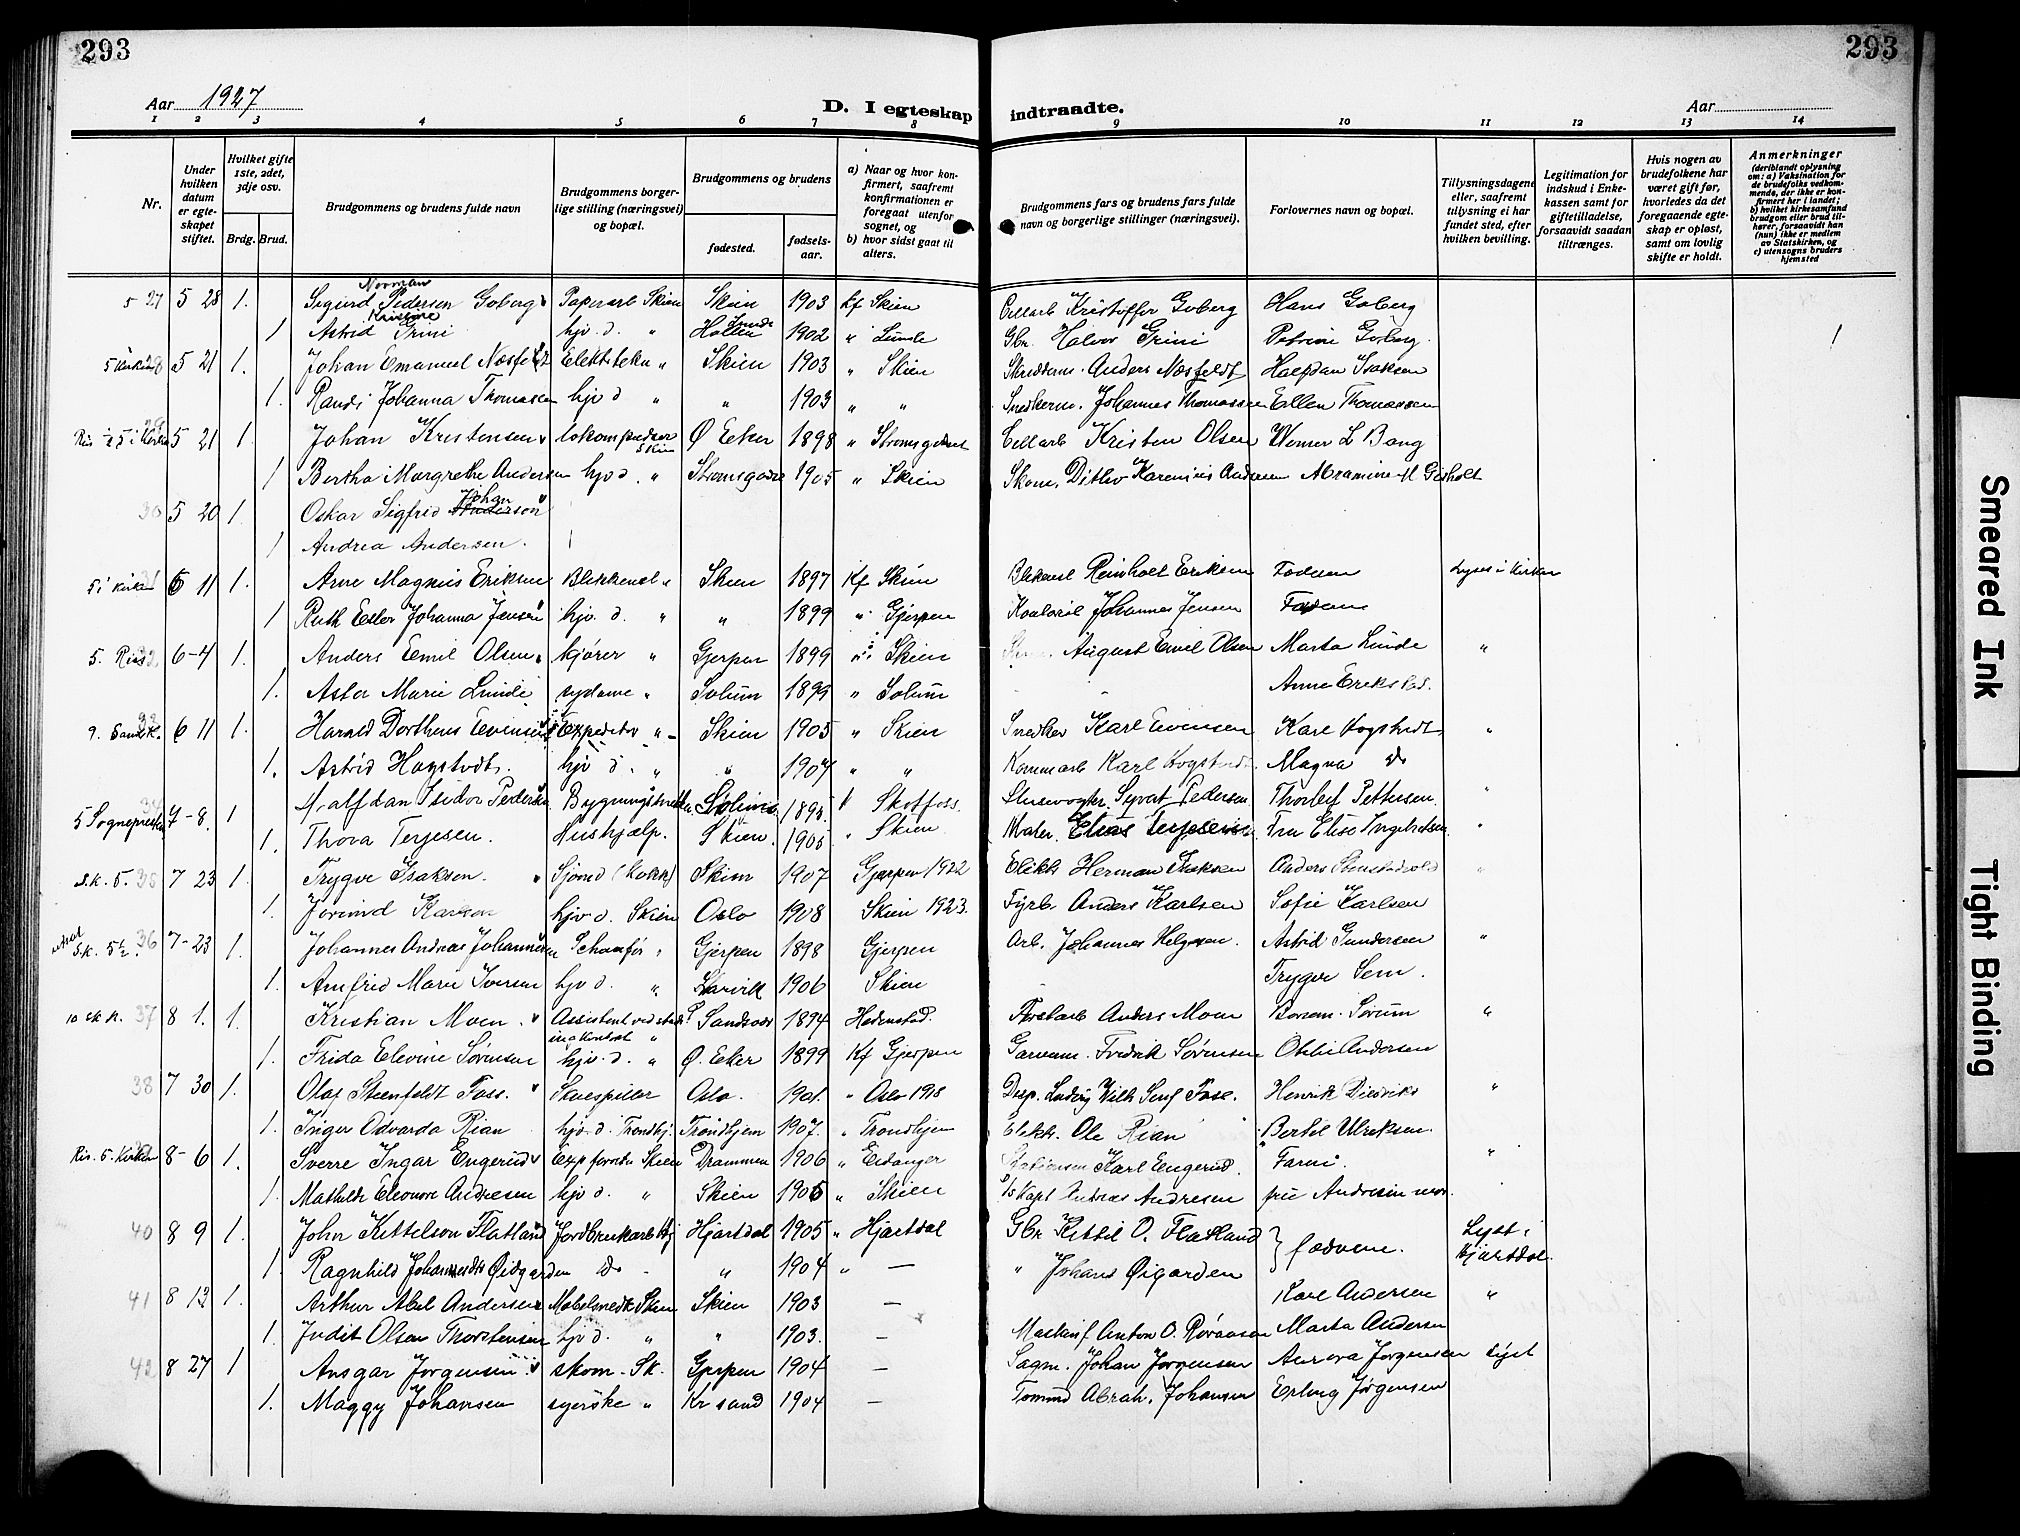 293
293
Aar 1927
D. I egteskap indtraadte.
Aar
1 2 3 4 5 6 7 8 9 10 11 12 13 14
Nr.
Under hvilken datum er egteskapet stiftet.
Hvilket gifte 1ste, 2det, 3dje osv.
Brdg. Brud.
Brudgommens og brudens fulde navn
Brudgommens borgerlige stilling (næringsvei) og bopæl.
Brudgommens og brudens
fødested.
fødselsaar.
a) Naar og hvor konfirmert, saafremt konfirmationen er foregaat utenfor sognet, og
b) hvor sidst gaat til alters.
Brudgommens fars og brudens fars fulde navn og borgerlige stillinger (næringsvei).
Forlovernes navn og bopæl.
Tillysningsdagene eller, saafremt tillysning ei har fundet sted, efter hvilken bevilling.
Legitimation for indskud i Enkekassen samt for giftetilladelse, forsaavidt saadan tiltrænges.
Hvis nogen av brudefolkene har været gift før, hvorledes da det foregaaende egteskap er opløst, samt om lovlig skifte er holdt.
Anmerkninger
(deriblandt oplysning om: a) Vaksination for de brudefolks vedkommende, der ikke er konfirmert her i landet; b) hvilket kirkesamfund brudgom eller brud tilhører, forsaavidt han (hun) ikke er medlem av Statskirken, og c) utensogns bruders hjemsted
Norman
5 27 5 28 1. Sigurd Pedersen Goberg Papirarb Skien Skien 1903 Kf Skien Cellarb Kristoffer Goberg Hans Goberg
Kristine
1 Astrid Grini hjv. d. " Hollen Lunde 1902 " Lunde Gbr. Halvor Grini Petrine Goberg 1
5 Kirken 28 5 21 1. Johan Emanuel Næsfeldt Elektrikn " Skien 1903 " Skien Skredderm. Anders Næsfeldt Halfdan Isaksen
1. Randi Johanna Thomassen hjv d " " 1903 " " Snedkerm. Johannes Thomassen Ellen Thomassen
5 i Kirken 29 5 21 1. Johan Kristensen Lokompudser Skien Ø Eker 1898 " Strømsgodset Cellarb Kristen Olsen Werner L Bang
1 Bertha Margrethe Andersen hjv d. " Strømsgodset 1905 " Skien Skom. Ditlev Karenius Andersen Abramine M Gisholt
30 5 20 1. Oskar Sigfrid Johan Anderson
1 Andrea Andersen.
5 i Kirken 31 6 11 1. Arne Magnus Eriksen Blikkensl " Skien 1897 Kf Skien Blikkensl Reinholt Eriksen Fødrene Lyses i Kirken
1 Ruth Ester Johanna Jensen hjv. d. " " 1899 " Gjerpen Johannes Jensen
5. Res 32 6-4 1. Anders Emil Olsen kjører " Gjerpen 1899 " Skien August Emil Olsen Marta Lunde "
1. Asta Marie Lunde sydame " Solum 1899 " Solum Anne Eriksrød.
9. Samk. 33 6 11 1. Harald Dortheus Evensen Expeditør " Skien 1905 " Skien Snedker Karl Evensen Kare Hogstvedt "
1. Astrid Hogstvedt. hjv d. " " 1907 " " Kommarb Karl Hogstvedt Magna do
5 Sogneprest 34 7-8. 1 Halfdan Isidor Pedersen Bygningssnekker Solum 1895 Skotfoss. Slusevogter. Syvert Pedersen Thorleif Pettersen. "
1. Thora Terjesen. Hushjælp. Skien. 1905 " Skien Maler. Elias Terjesen Fru Elise Ingebretsen. "
S.K. 5. 35 7 23 1. Trygve Isaksen. Sjømd (Kokk) Skien 1907 Gjerpen 1922 Elektr Herman Isaksen Anders
1. Jorund Karlsen hjv d. Skien Oslo 1908 Skien 1923. Fyrb Anders Karlsen Sofie Karlsen
S.k. 5½. 36 7-23 1. Johannes Andreas Johannesen Schaufør " Gjerpen 1898 Gjerpen Arb. Johannes Helgesen. Astrid Gundersen "
1. Arnfrid Marie Iversen hjv d. " Larvik 1906 Skien Trygve Sem.
10 sk K. 37 8 1. 1. Kristian Moen. Assistent ved skatt ing kontoret " Sandsvær 1894 Hedenstad. Anders Moen Sørum "
1. Frida Elevine Sørensen hjv. d. " Ø. Eker 1899 Kf Gjerpen Garverm. Fredrik Sørensen Othi Andersen
38 7 30 1. Olaf Steenfeldt Foss. Skuespiller Oslo. 1901. " Oslo 1918 Disp. Ludvig Vilh Senf Foss. Henrik Diedriks "
1. Inger Edvarda Rian hjv d. Trondhj. Trondhjem 1907. " Trondhjem Elektr. Ole Rian Bertel Ulriksen.
Res. 5. Kirken 39 8-6 1. Sverre Ingar Engerud Exp Skien Drammen 1906 " Eidanger Karl Engerud. Farni. "
1. Mathilde Eleonore Andresen hjv d. " Skien 1905 " Skien Kapt Andreas Andresen fru Andresen mor.
40 8 9 1. John Kittelson Flatland Jordbrukarb Hj Hjartdal 1905 " Hjartdal Gbr Kittil O. Flatland } fædrene. Lyst i Hjartdal.
1. Ragnhild Johannesdtr Øigarden do - " 1904 " — " Johans Øigarden
41 8 13 1. Arthur Abel Andersen Møbelsnedk Skien Skien 1903 — Kare Andersen "
1. Judit Olsen Thorstensen hjv d. " " 1903. — Anton O. Marta Andersen
42 8 27 1 Ansgar Jørgensen skom. Sk. Gjerpen 1904 — Sagm. Johan Jørgensen Aurora Jørgensen Lyst
1. Maggy Johansen syerske " Kr sand 1904 — Tømmd Abrah. Johansen Erling Jørgensen
Smeared Ink
Tight Binding